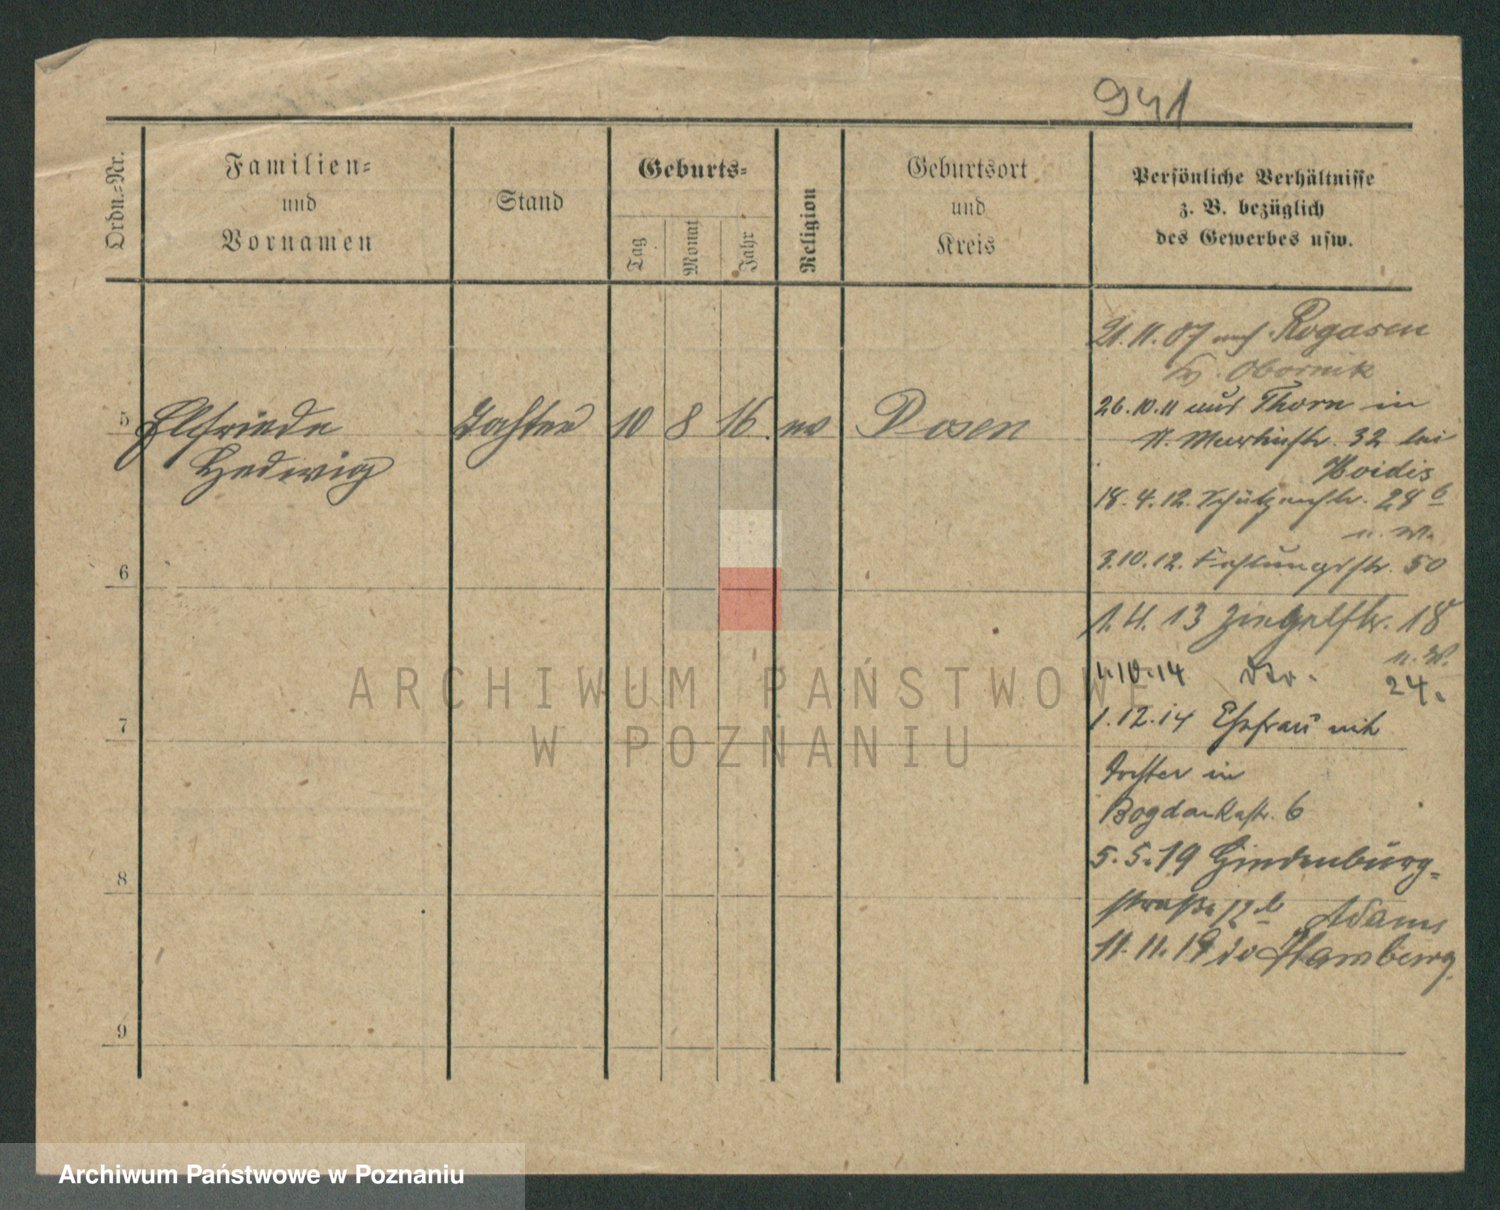 941
Ordn.-Nr.
Familien-
und
Vornamen
Stand
Geburts-
Tag
Monat
Jahr
Religion
Geburtsort
und
Kreis
Persönliche Verhältnisse
z. B. bezüglich
des Gewerbes usw.
5 Elfriede Tochter 10 8 16. ev Posen
Hedwig
6
7
8
9
21.11.07 nach Rogasen
Kr. Obornik
26.10.11 aus Thorn in
St. Martinstr. 32 bei
Hoidis
18.4.12. Schützenstr. 28 b
n. W.
3.10.12. Festungsstr. 50
1.4.13 Ziegelstr. 18
n. W.
1.10.14 24.
1.12.14 Ehefrau mit
Tochter in
Bogdankastr. 6
5.5.19 Hindenburg-
straße b Adams
11.11.19 Hamberg
ARCHIWUM PAŃSTWOWE
W POZNANIU
Archiwum Państwowe w Poznaniu